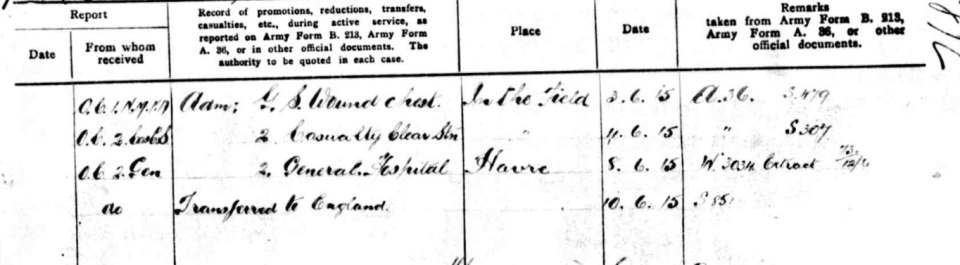 Report
Record of promotions, reductions, transfers,
casualties, etc., during active service, as
reported on Army Form B. 213, Army Form
A. 36, or in other official documents. The
authority to be quoted in each case.
Place
Date
Remarks
taken from Army Form B. 213,
Army Form A. 36, or other
official documents.
Date
From whom
received
Adm; G. S. Wound chest. In the Field 3. 6. 15 A.36.
O.C. 2 2 Casualty Clear Stn " 4. 6. 15 " S.307
O.C 2 Gen 2. General Hospital Havre 8. 6. 15 W.3034 Extract
do Transferred to England. 10. 6. 15